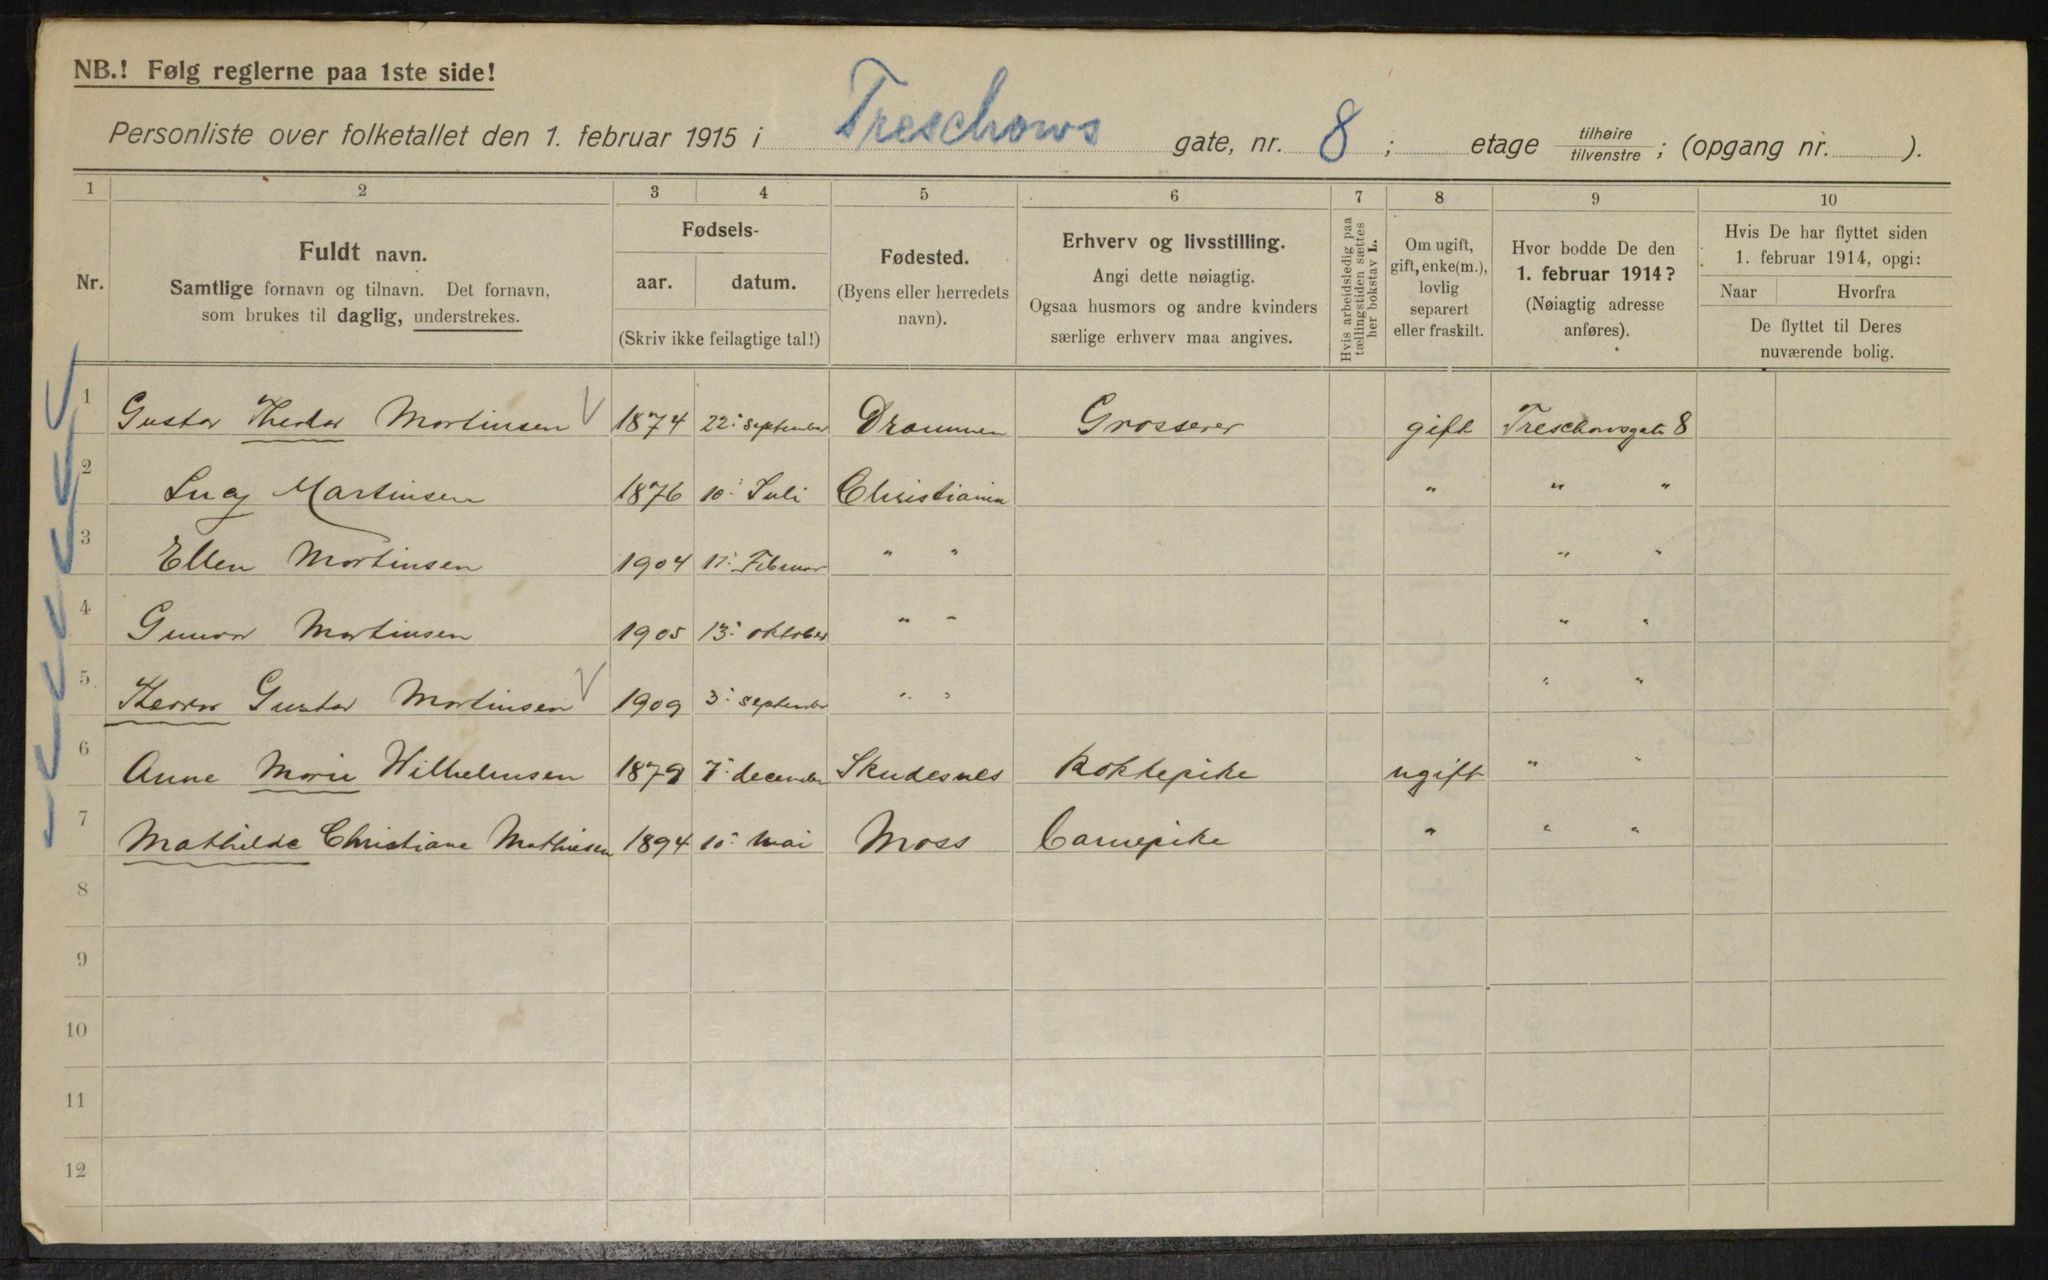 NB.! Følg reglerne paa 1ste side!
Personliste over folketallet den 1. februar 1915 i Treschows gate, nr. 8; etage tilhøire / tilvenstre; (opgang nr. ).
1 2 3 4 5 6 7 8 9 10
Nr.
Fuldt navn.
Samtlige fornavn og tilnavn. Det fornavn,
som brukes til daglig, understrekes.
Fødsels-
aar. datum.
(Skriv ikke feilagtige tal!)
Fødested.
(Byens eller herredets
navn).
Erhverv og livsstilling.
Angi dette nøiagtig.
Ogsaa husmors og andre kvinders
særlige erhverv maa angives.
Hvis arbeidsledig paa
tællingstiden sættes
her bokstav L.
Om ugift,
gift, enke(m.),
lovlig
separert
eller fraskilt.
Hvor bodde De den
1. februar 1914?
(Nøiagtig adresse
anføres).
Hvis De har flyttet siden
1. februar 1914, opgi:
Naar Hvorfra
De flyttet til Deres
nuværende bolig.
1 Gustav Theodor Martinsen 1874 22. september Drammen Grosserer gift Treschowsgate 8
2 Lucy Martinsen 1876 10. Juli Christiania " " "
3 Ellen Martinsen 1904 Februar " " " "
4 Gunvor Martinsen 1905 13. oktober " " " "
5 Gustav Martinsen 1909 3. september " " " "
6 Anne Marie Wilhelmsen 1879 7. december Skudesnes Kokkepike ugift " "
7 Mathilde Christiane Mathisen 1894 10. Mai Moss Barnepike " " "
8
9
10
11
12